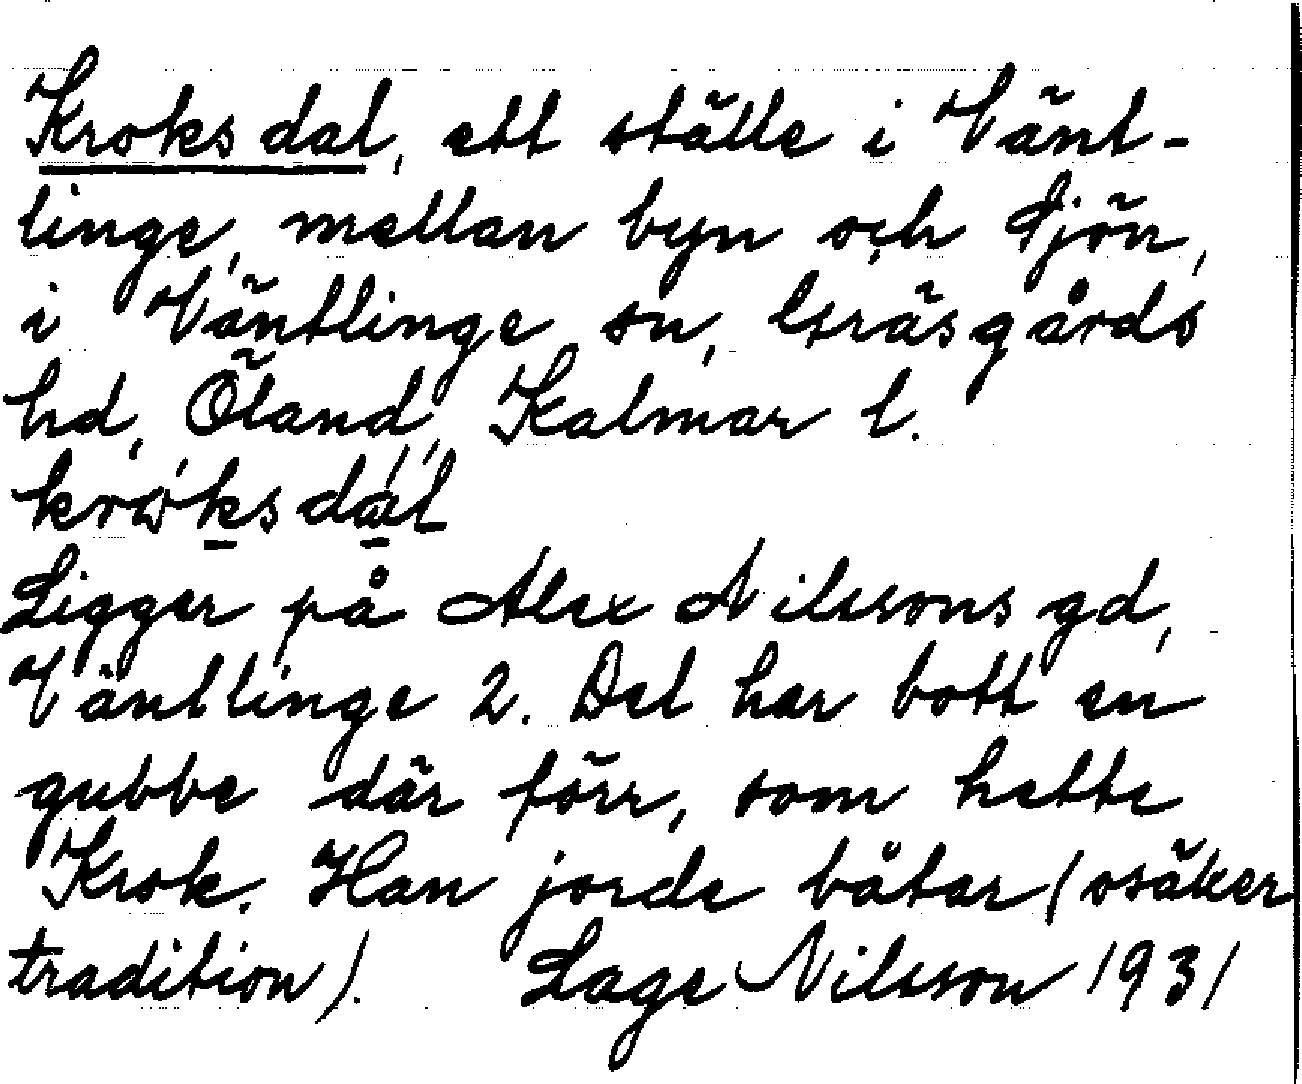 Kroksdal, ett ställe i Vänt-
linge, mellan byn och sjön,
i Ventlinge sn, Gräsgårds
hd, Öland, Kalmar l.
Ligger på Alex Nilssons gd,
Väntlinge 2. Det har bott en
gubbe där förr, som hette
Krok. Han jorde båtar (osäker
tradition). Lage Nilsson 1931